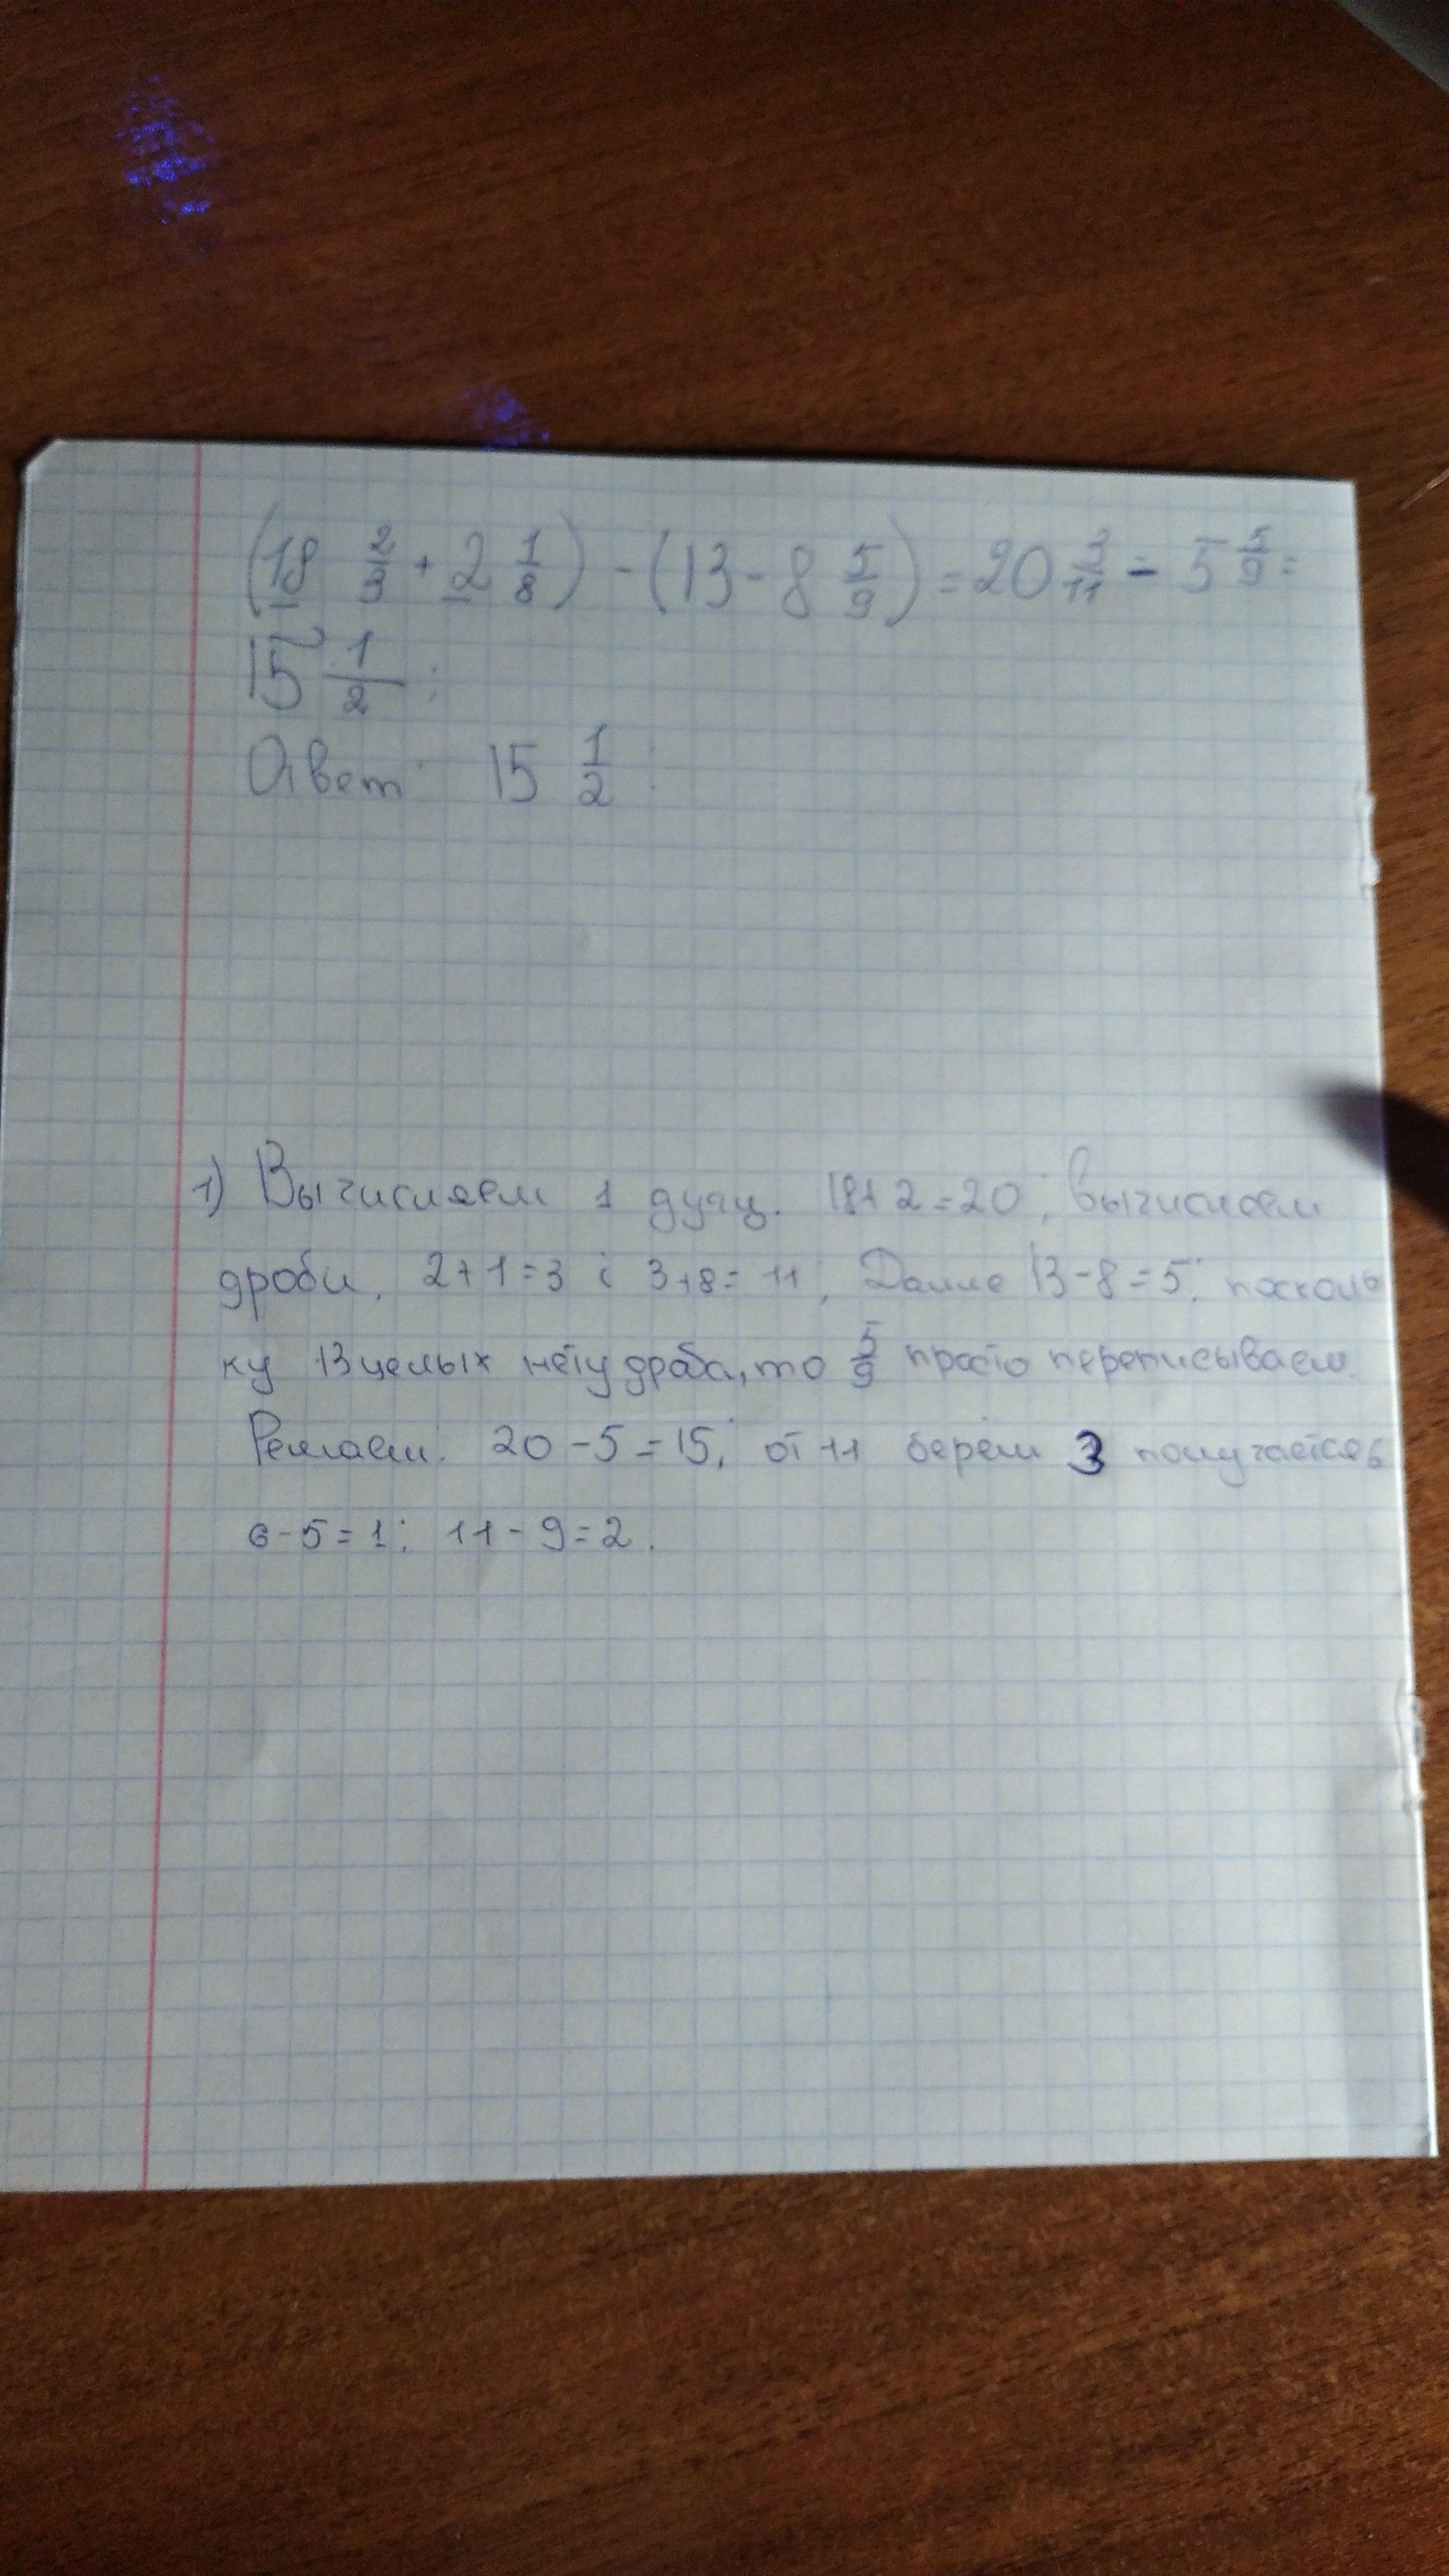 (18 2/3 + 2 1/8) - (13 - 8 5/9) = 20 3/11 - 5 5/9 =
15 1/2 ;
Ответ: 15 1/2 :
1) Вычисляем 1 дугу. 18+2=20; вычислаем
дроби. 2+1=3 і 3+8=11; Далше 13-8=5; посколь
ку 13 целых нету дроба, то 5/9 просто переписываем.
Решаем: 20-5=15; от 11 берем 3 получается
6-5=1; 11-9=2.